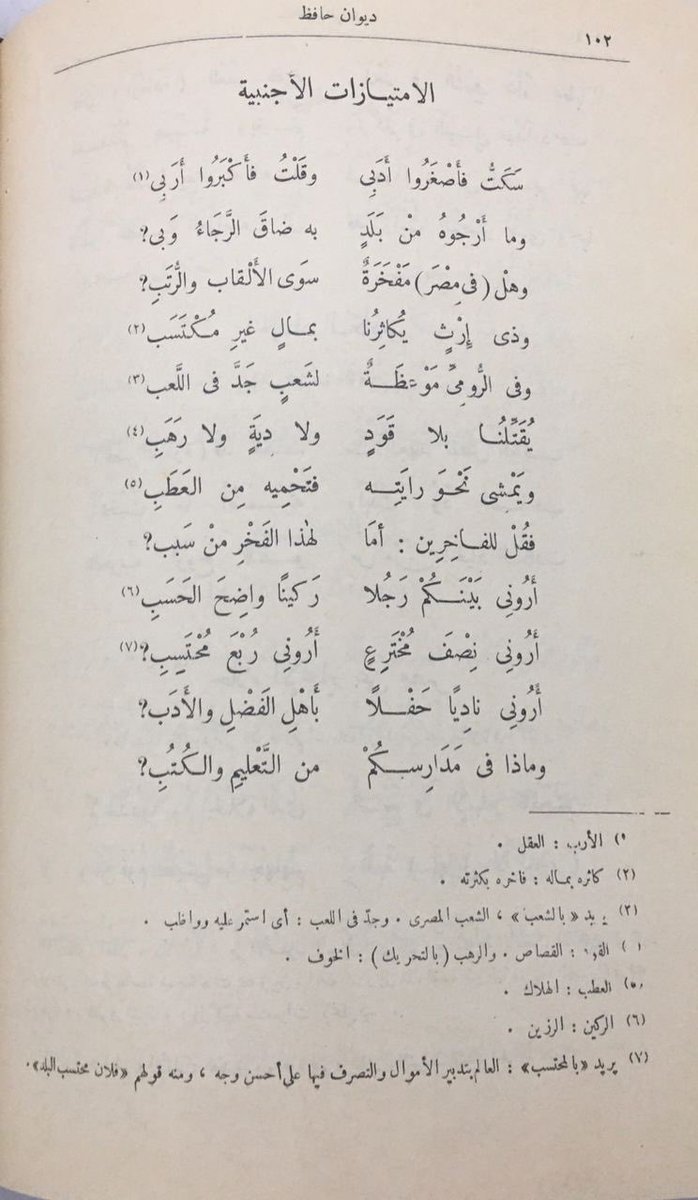 ديوان حافظ
١٠٢
الامتيازات الأجنبية
سَكَتُّ فأَصْغَرُوا أَدَبِى وقُلْتُ فأَكْبَرُوا أَرَبِى(١)
وما أَرْجُوهُ مِنْ بَلَدٍ به ضاقَ الرَّجَاءُ وَبِى؟
وهلْ (فى مِصْرَ) مَفْخَرَةٌ سوَى الأَلْقاب والرُّتَبِ؟
وذى إِرْثٍ يُكاثِرُنا بمالٍ غيرِ مُكْتَسَب(٢)
وفى الرُّومىِّ مَوْعِظَةٌ لشَعبٍ جَدَّ فى اللَّعب(٣)
يُقَتِّلُنا بلا قَوَدٍ ولا ديَةٍ ولا رَهَبِ(٤)
ويَمْشى نَحْوَ رايَتِه فتَحْمِيه مِن العَطَبِ(٥)
فقُلْ للفاخِرين : أمَا لهٰذا الفَخْرِ مِنْ سَبب؟
أَرُونى بَيْنَكُمْ رَجُلا رَكينًا واضِحَ الحَسَبِ(٦)
أَرُونى نِصْفَ مُخْتَرِعٍ أَرُونى رُبْعَ مُحْتَسِبِ؟(٧)
أَرُونى نادِيًا حَفْلًا بأَهْلِ الفَضْلِ والأَدَب؟
وماذا فى مَدَارِسكُمْ من التَّعْليمِ والكُتُبِ؟
(١) الأرب : العقل .
(٢) كاثره بماله : فاخره بكثرته .
(٣) يريد «بالشعب» ، الشعب المصرى . وجدّ فى اللعب : أى استمر عليه وواظب .
( ) القود : القصاص . والرهب (بالتحريك) : الخوف .
(٥) العطب : الهلاك .
(٦) الركين : الرزين .
(٧) يريد «بالمحتسب» : العالم بتدبير الأموال والتصرف فيها على أحسن وجه ، ومنه قولهم «فلان محتسب البلد» .